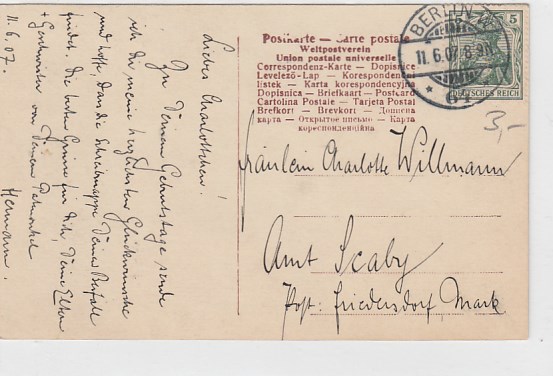 Liebes Charlottchen!
Zu Deinem Geburtstage sende
ich Dir meine herzlichsten Glückwünsche
und hoffe, dass die Schreibmappe Deinen Beifall
findet. Die besten Grüsse für Dich, Deine Eltern
+ Geschwister von Deinem Patenonkel
Hermann.
11.6.07.
Postkarte — Carte postale
Weltpostverein
Union postale universelle
Correspondenz-Karte — Dopisnice
Levelező-Lap — Korespondencni
listek — Karta korespondencyjna
Dopisnica — Briefkaart — Postcard
Cartolina Postale — Tarjeta Postal
Brefkort — Brevkort — Дописна
карта — Открытое письмо — Карта
кореспонденційна
BERLIN
11.6.07.8-9N
* 64
5
DEUTSCHES REICH
3,-
Fräulein Charlotte Willmann
Amt Scaby
Post: Friedersdorf Mark